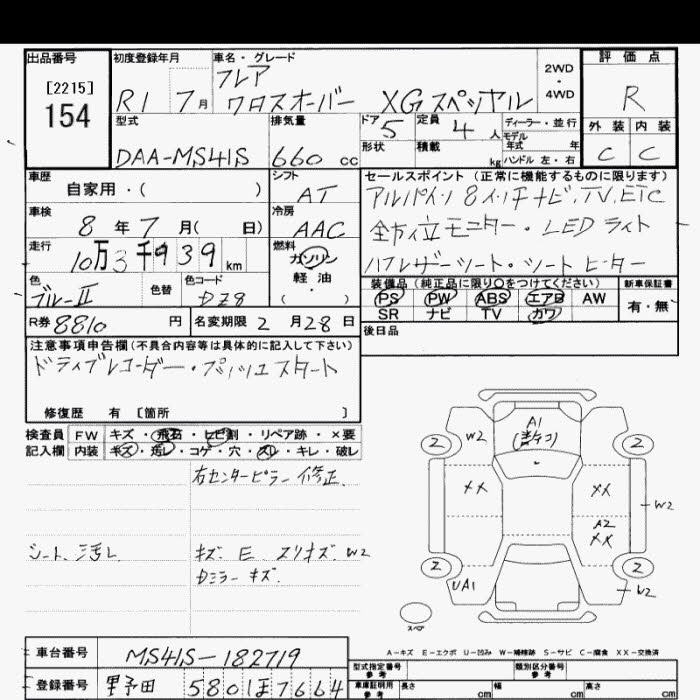 出品番号
[2215]
154
初度登録年月
R1 7月
車名・グレード
フレア
クロスオーバー XGスペシャル
2WD
・
4WD
評価点
R
外装 内装
C C
型式
DAA-MS41S
排気量
660 cc
ドア
5
定員
4 人
ディーラー・並行
モデル
年式 年
形状
積載
kg
ハンドル 左・右
車歴
自家用・( )
シフト
AT
車検
8 年 7 月( 日)
冷房
AAC
走行
10万3千939 km
燃料
ガソリン
軽油
( ・ )
色
ブルーⅡ
色替
色コード
DZ8
R券 8810 円
名変期限 2 月 28 日
セールスポイント(正常に機能するものに限ります)
アルパイン 8インチナビ,TV,ETC
全方位モニター・LEDライト
ハーフレザーシート・シートヒーター
装備品(純正品に限り○をつけてください)
新車保証書
PS PW ABS エアB AW
SR ナビ TV カワ
有・無
後日品
注意事項申告欄(不具合内容等は具体的に記入して下さい)
ドライブレコーダー・プッシュスタート
修復歴 有 [箇所 ]
検査員
記入欄
FW キズ・飛石・ヒビ割・リペア跡・×要
内装 キズ・汚レ・コゲ・穴・スレ・キレ・破レ
右センターピラー 修正.
シート. 汚レ
キズ. E. スリキズ. W2
Dミラー キズ.
A1
2 W2 2
XX XX
W2
A2
XX
2 2
UA1 W2
スペア
A-キズ E-エクボ U-凹み W-補修跡 S-サビ C-腐食 XX-交換済
車台番号 MS41S-182719
登録番号
580 ほ 7664
型式指定番号
参考
類別区分番号
参考
車庫証明用
参考
長さ cm 幅 cm 高さ cm